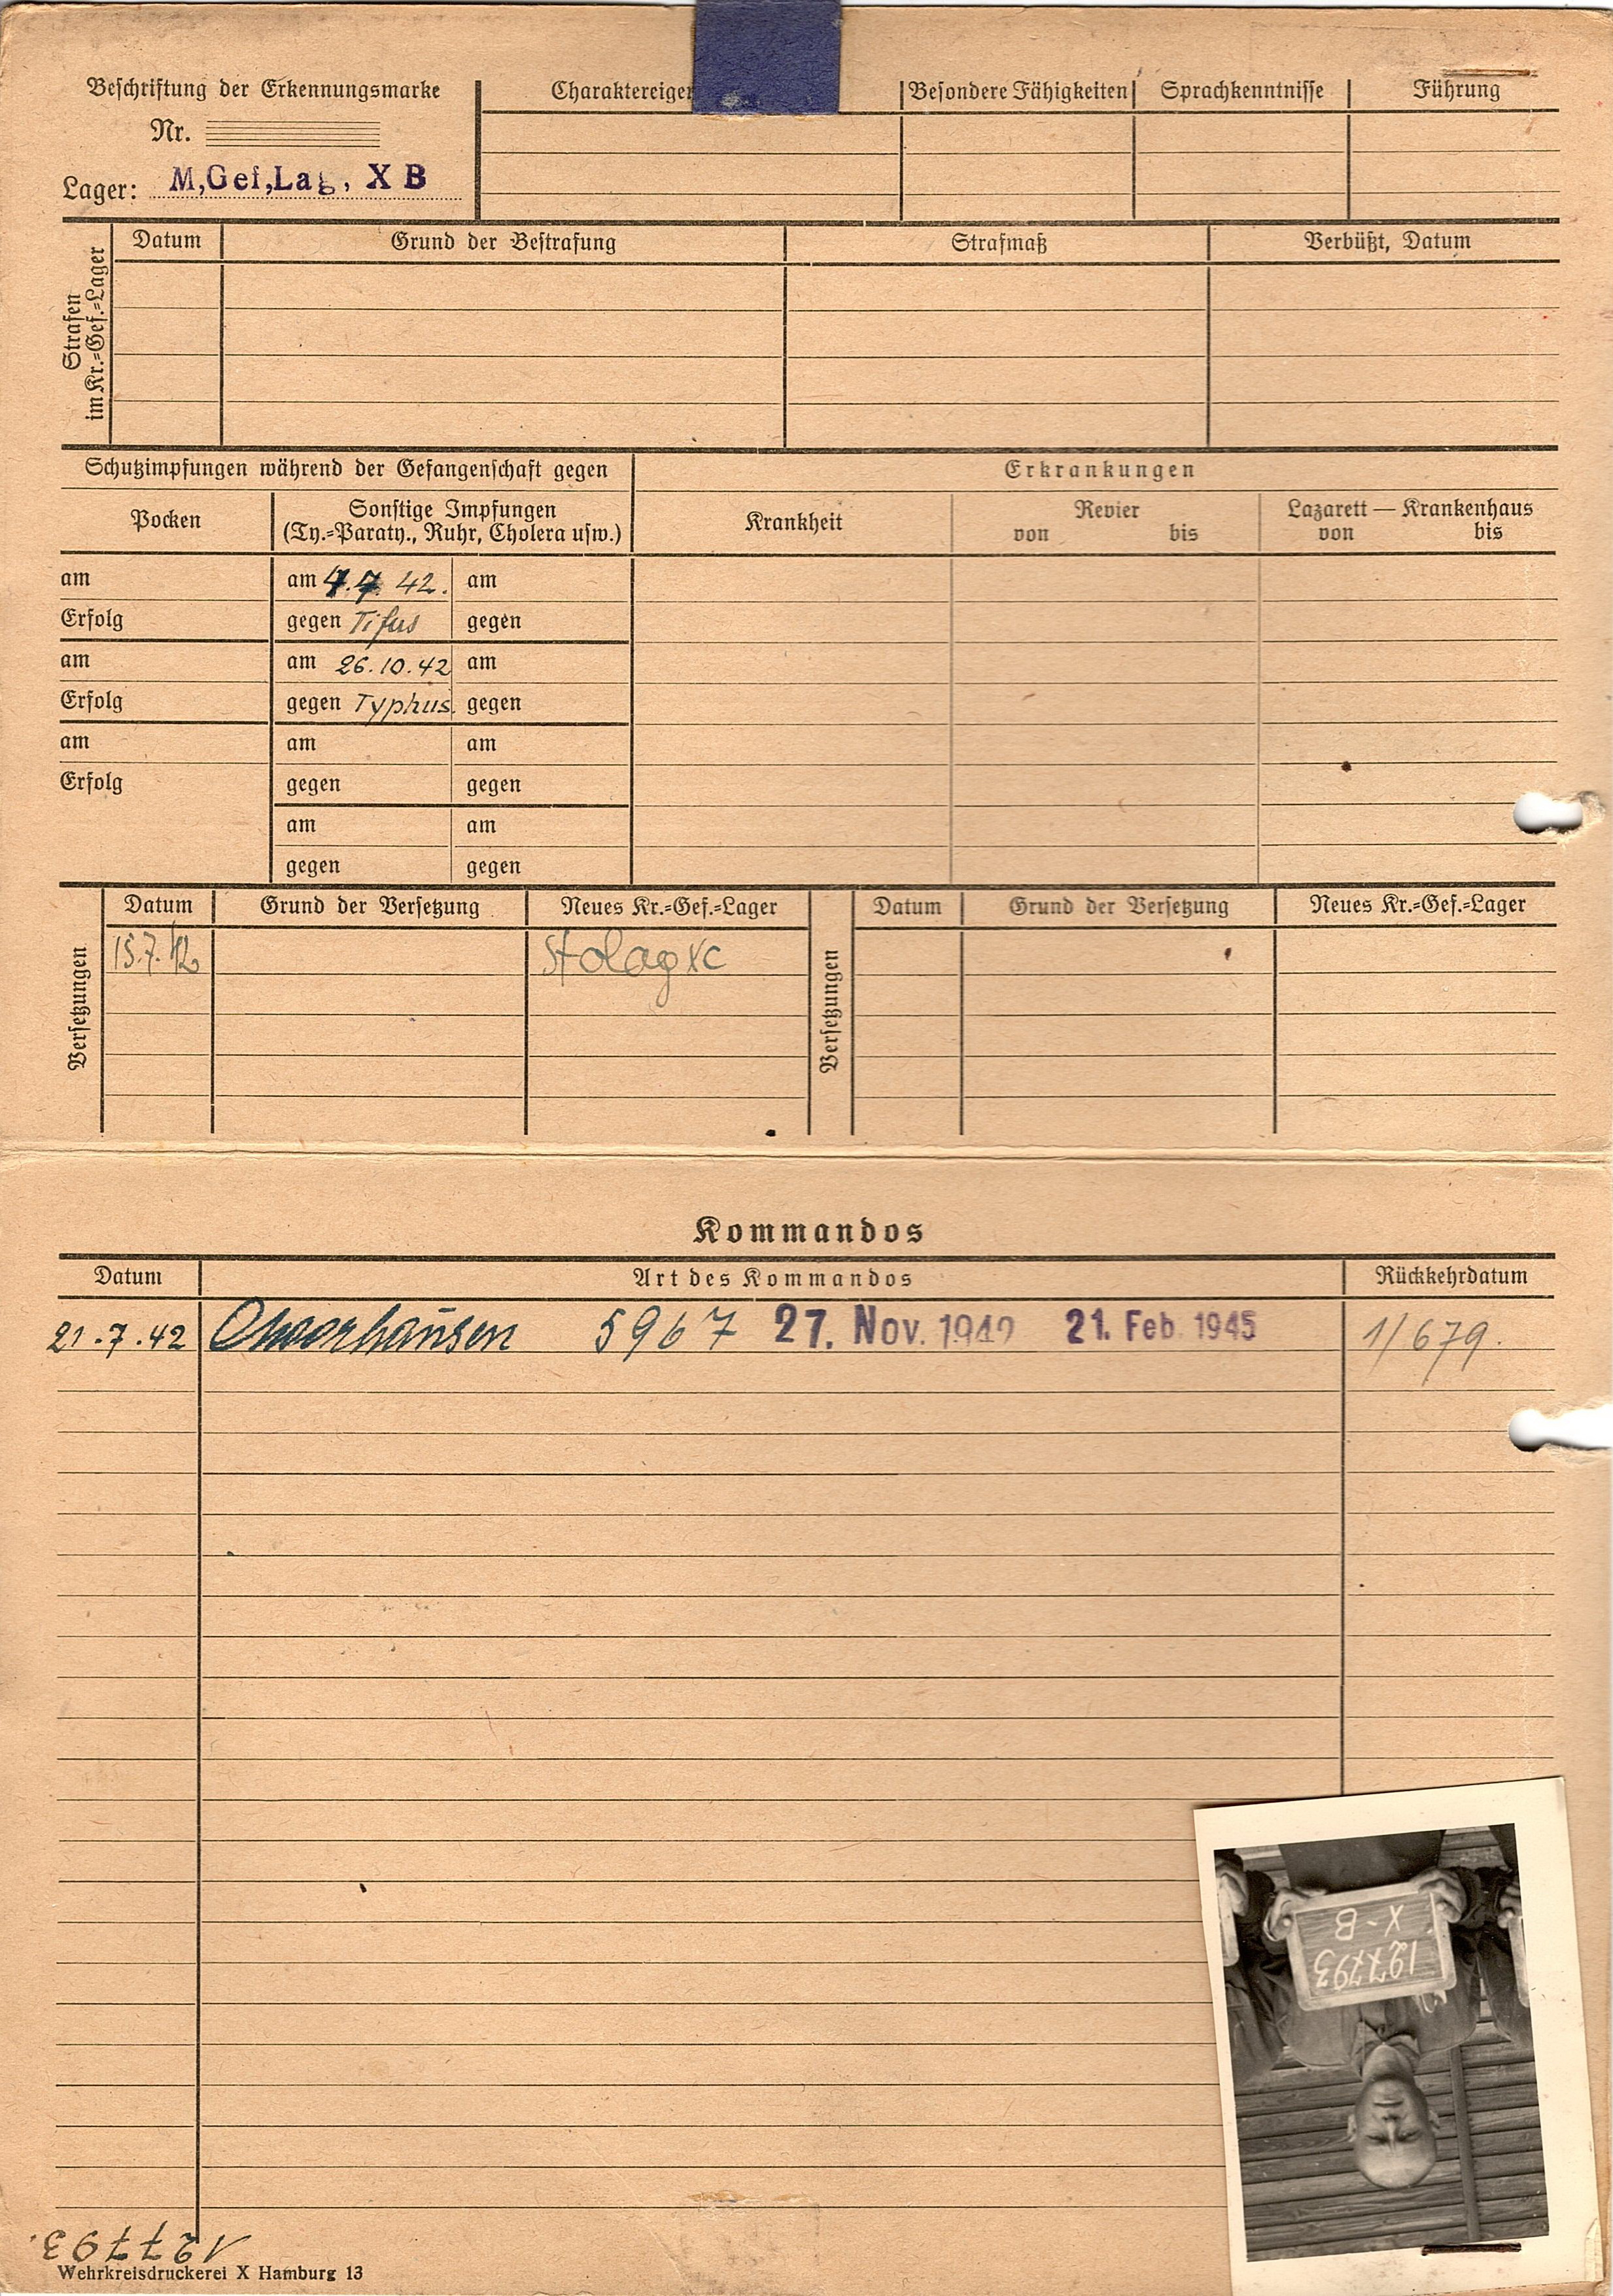 Beschriftung der Erkennungsmarke
Nr.
Lager: M,Gef,Lag, X B
Charaktereigen Besondere Fähigkeiten Sprachkenntnisse Führung
Strafen im Kr.=Gef.=Lager
Datum Grund der Bestrafung Strafmaß Verbüßt, Datum
Schutzimpfungen während der Gefangenschaft gegen
Erkrankungen
Pocken
Sonstige Impfungen
(Ty.=Paraty., Ruhr, Cholera usw.)
Krankheit
Revier
von bis
Lazarett — Krankenhaus
von bis
am am 7.7. 42. am
Erfolg gegen Tifus gegen
am am 26.10.42 am
Erfolg gegen Typhus. gegen
am am am
Erfolg gegen gegen
am am
gegen gegen
Versetzungen
Datum Grund der Versetzung Neues Kr.=Gef.=Lager
15.7.42 Stalag XC
Versetzungen
Datum Grund der Versetzung Neues Kr.=Gef.=Lager
Kommandos
Datum Art des Kommandos Rückkehrdatum
21.7.42 5967 27. Nov. 1942 21. Feb. 1945 1/679.
X-B
127793
127793.
Wehrkreisdruckerei X Hamburg 13